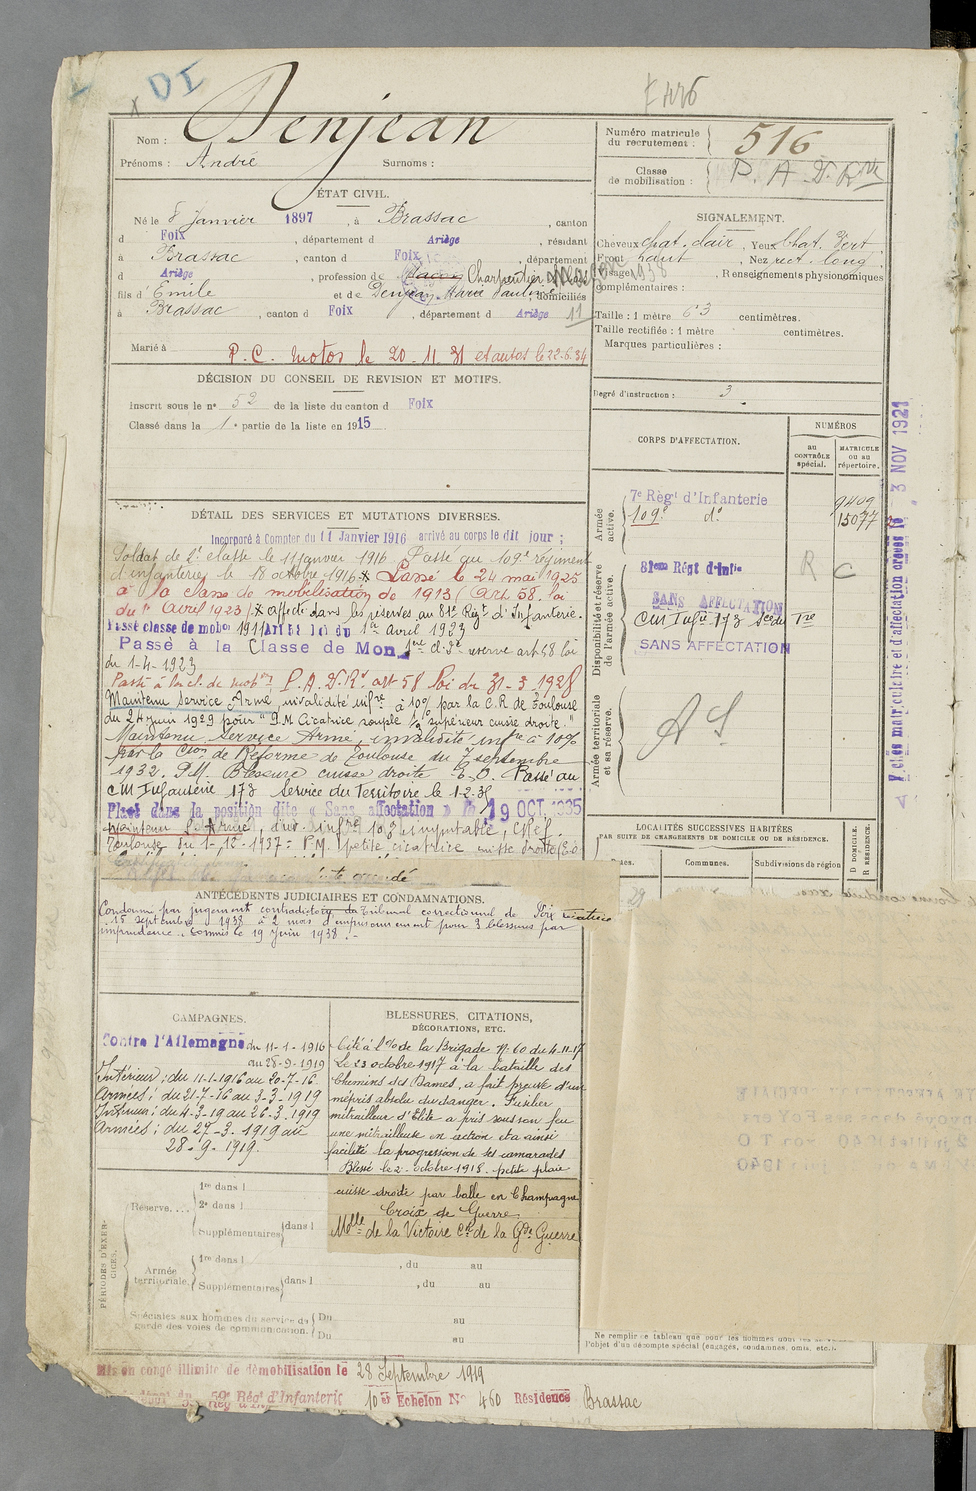 DI
Nom : Denjean
Prénoms : André Surnoms :
Numéro matricule
du recrutement : 516
Classe
de mobilisation : P. A. D. Rve
ÉTAT CIVIL.
Né le 8 janvier 1897, à Brassac, canton
d Foix, département d Ariège, résidant
à Brassac, canton d Foix, département
d Ariège, profession de Charpentier
fils d' Emile et de Denjean Marie Pauline domiciliés
à Brassac, canton d Foix, département d Ariège
Marié à
P. C. motos le 20-11-31 et autos le 22-6-34
SIGNALEMENT.
Cheveux chat. clair, Yeux chat. vert
Front haut, Nez rect. long
Visage, Renseignements physionomiques
complémentaires :
Taille : 1 mètre 63 centimètres.
Taille rectifiée : 1 mètre centimètres.
Marques particulières :
Degré d'instruction : 3
DÉCISION DU CONSEIL DE REVISION ET MOTIFS.
Inscrit sous le nº 52 de la liste du canton d Foix
Classé dans la 1e partie de la liste en 1915
CORPS D'AFFECTATION.
NUMÉROS
au
CONTRÔLE
spécial.
MATRICULE
ou au
répertoire.
Armée
active.
7e Règt d'Infanterie 9409
109e do 15077
Disponibilité et réserve
de l'armée active.
81eme Régt d'Infie R C
SANS AFFECTATION
CM Infie 173 Sce du Tre
SANS AFFECTATION
Armée territoriale
et sa réserve.
3 NOV 1921
DÉTAIL DES SERVICES ET MUTATIONS DIVERSES.
Incorporé à Compter du 11 Janvier 1916 arrivé au corps le dit jour ;
Soldat de 2e classe le 11 janvier 1916 Passé au 109e régiment
d'infanterie le 18 octobre 1916. * Passé le 24 mai 1925
à la classe de mobilisation de 1913 (Art. 58. loi
du 1er Avril 1923) * affecté dans les réserves au 81e Régt d'Infanterie.
Passé classe de mobon 1911 Art 58 loi du 1er Avril 1923
Passé à la Classe de Mon 1ère cl. 2e réserve art 58 loi
du 1-4-1923
Passé à la cl. de mobon P. A. D. Rve art 58 loi du 31-3-1928
Maintenu Service Armé, invalidité infre à 10% par la C.R de Toulouse
du 24 juin 1929 pour "P.M Cicatrice souple 1/3 supérieur cuisse droite."
Maintenu Service Armé, invalidité infre à 10%
par la Cion de Réforme de Toulouse du 7 septembre
1932. P.M. Blessure cuisse droite - E.O. Passé au
CM Infanterie 173 Service du Territoire le 1-2-35
Placé dans la position dite « Sans affectation » le 19 OCT. 1935
Maintenu S. Armé, inv. infre 10% imputable, C. Réf.
Toulouse du 1-12-1937 : P.M. petite cicatrice cuisse droite E.O
LOCALITÉS SUCCESSIVES HABITÉES
PAR SUITE DE CHANGEMENTS DE DOMICILE OU DE RÉSIDENCE.
Dates.
Communes.
Subdivisions de région
D DOMICILE.
R RÉSIDENCE.
ANTÉCÉDENTS JUDICIAIRES ET CONDAMNATIONS.
Condamné par jugement contradictoire du Tribunal correctionnel de Foix
15 septembre 1938 à 2 mois d'emprisonnement pour 3 blessures par
imprudence. Commis le 19 Juin 1938.-
CAMPAGNES.
Contre l'Allemagne du 11-1-1916
au 28-9-1919
Intérieur : du 11-1-1916 au 20-7-16
Armées : du 21-7-16 au 3-3-1919
Intérieur : du 4-3-19 au 26-3-1919
Armées : du 27-3-1919 au
28-9-1919.
BLESSURES, CITATIONS,
DÉCORATIONS, ETC.
Cité à l'O/o de la Brigade Nº 60 du 4-11-17
Le 23 octobre 1917 à la bataille des
Chemins des Dames, a fait preuve d'un
mépris absolu du danger. Fusilier
mitrailleur d'Elite a pris sous son feu
une mitrailleuse en action et a ainsi
facilité la progression de ses camarades
Blessé le 2 octobre 1918. petite plaie
cuisse droite par balle en Champagne
Croix de Guerre
Mdlle de la Victoire Cve de la Gde Guerre
PÉRIODES D'EXER-
CICES.
Réserve....
1re dans l
2e dans l
Supplémentaires dans l
Armée
territoriale.
1re dans l, du au
Supplémentaires dans l, du au
Spéciales aux hommes du service de
garde des voies de communication.
Du au
Du au
Ne remplir ce tableau que pour les hommes dont
l'objet d'un décompte spécial (engagés, condamnés, omis, etc.).
Mis en congé illimité de démobilisation le 28 Septembre 1919
59e Régt d'Infanterie 10er Echelon No 460 Résidence Brassac